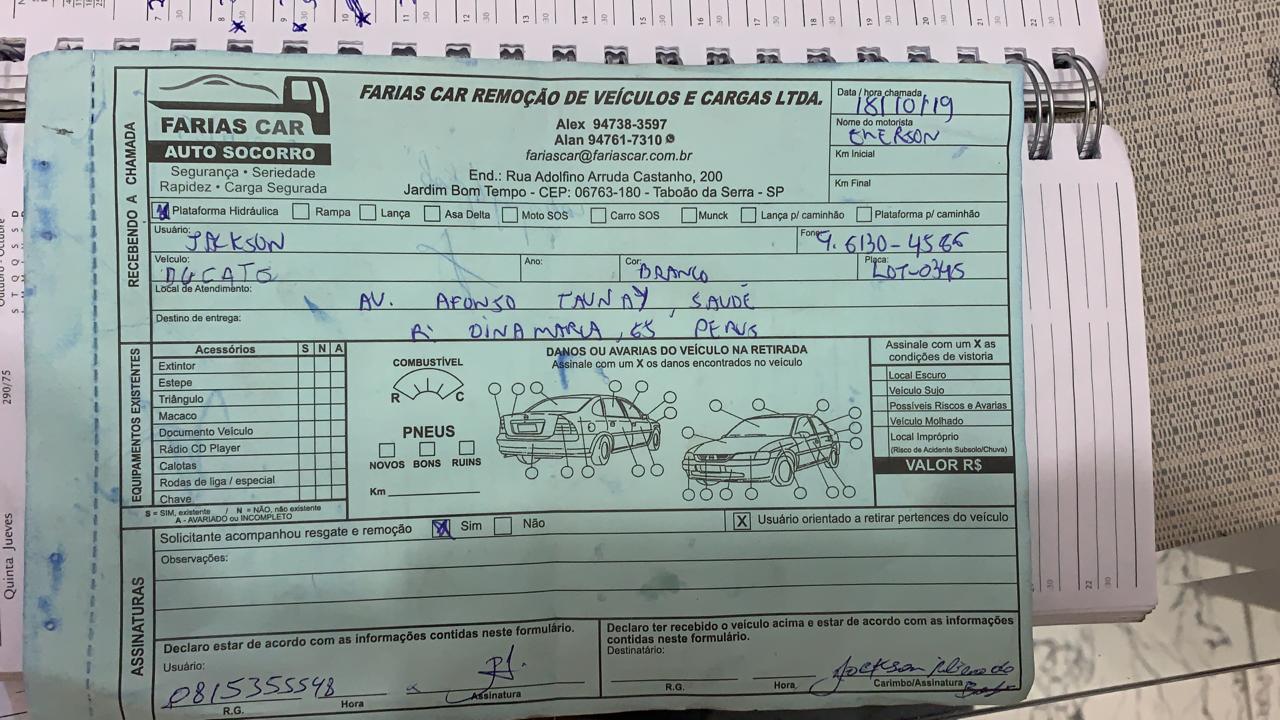 FARIAS CAR
AUTO SOCORRO
Segurança • Seriedade
Rapidez • Carga Segurada
FARIAS CAR REMOÇÃO DE VEÍCULOS E CARGAS LTDA.
Alex 94738-3597
Alan 94761-7310
fariascar@fariascar.com.br
End.: Rua Adolfino Arruda Castanho, 200
Jardim Bom Tempo - CEP: 06763-180 - Taboão da Serra - SP
Data / hora chamada
18/10/19
Nome do motorista
EMERSON
Km Inicial
Km Final
RECEBENDO A CHAMADA
Plataforma Hidráulica Rampa Lança Asa Delta Moto SOS Carro SOS Munck Lança p/ caminhão Plataforma p/ caminhão
Usuário: JACKSON Fone: 9.6130-4566
Veículo: DUCATO Ano: Cor: BRANCO Placa: LDT-0345
Local de Atendimento: AV. AFONSO TAUNAY, SAUDE
Destino de entrega: R: DINAMARCA, 65 PERUS
EQUIPAMENTOS EXISTENTES
Acessórios S N A
Extintor
Estepe
Triângulo
Macaco
Documento Veículo
Rádio CD Player
Calotas
Rodas de liga / especial
Chave
S = SIM, existente / N = NÃO, não existente
A - AVARIADO ou INCOMPLETO
COMBUSTÍVEL
R C
PNEUS
NOVOS BONS RUINS
Km
DANOS OU AVARIAS DO VEÍCULO NA RETIRADA
Assinale com um X os danos encontrados no veículo
Assinale com um X as
condições de vistoria
Local Escuro
Veículo Sujo
Possíveis Riscos e Avarias
Veículo Molhado
Local Impróprio
(Risco de Acidente Subsolo/Chuva)
VALOR R$
ASSINATURAS
Solicitante acompanhou resgate e remoção X Sim Não X Usuário orientado a retirar pertences do veículo
Observações:
Declaro estar de acordo com as informações contidas neste formulário.
Usuário:
0815355548
R.G. Hora Assinatura
Declaro ter recebido o veículo acima e estar de acordo com as informações
contidas neste formulário.
Destinatário:
Jackson
R.G. Hora Carimbo/Assinatura
290/75
Quinta Jueves